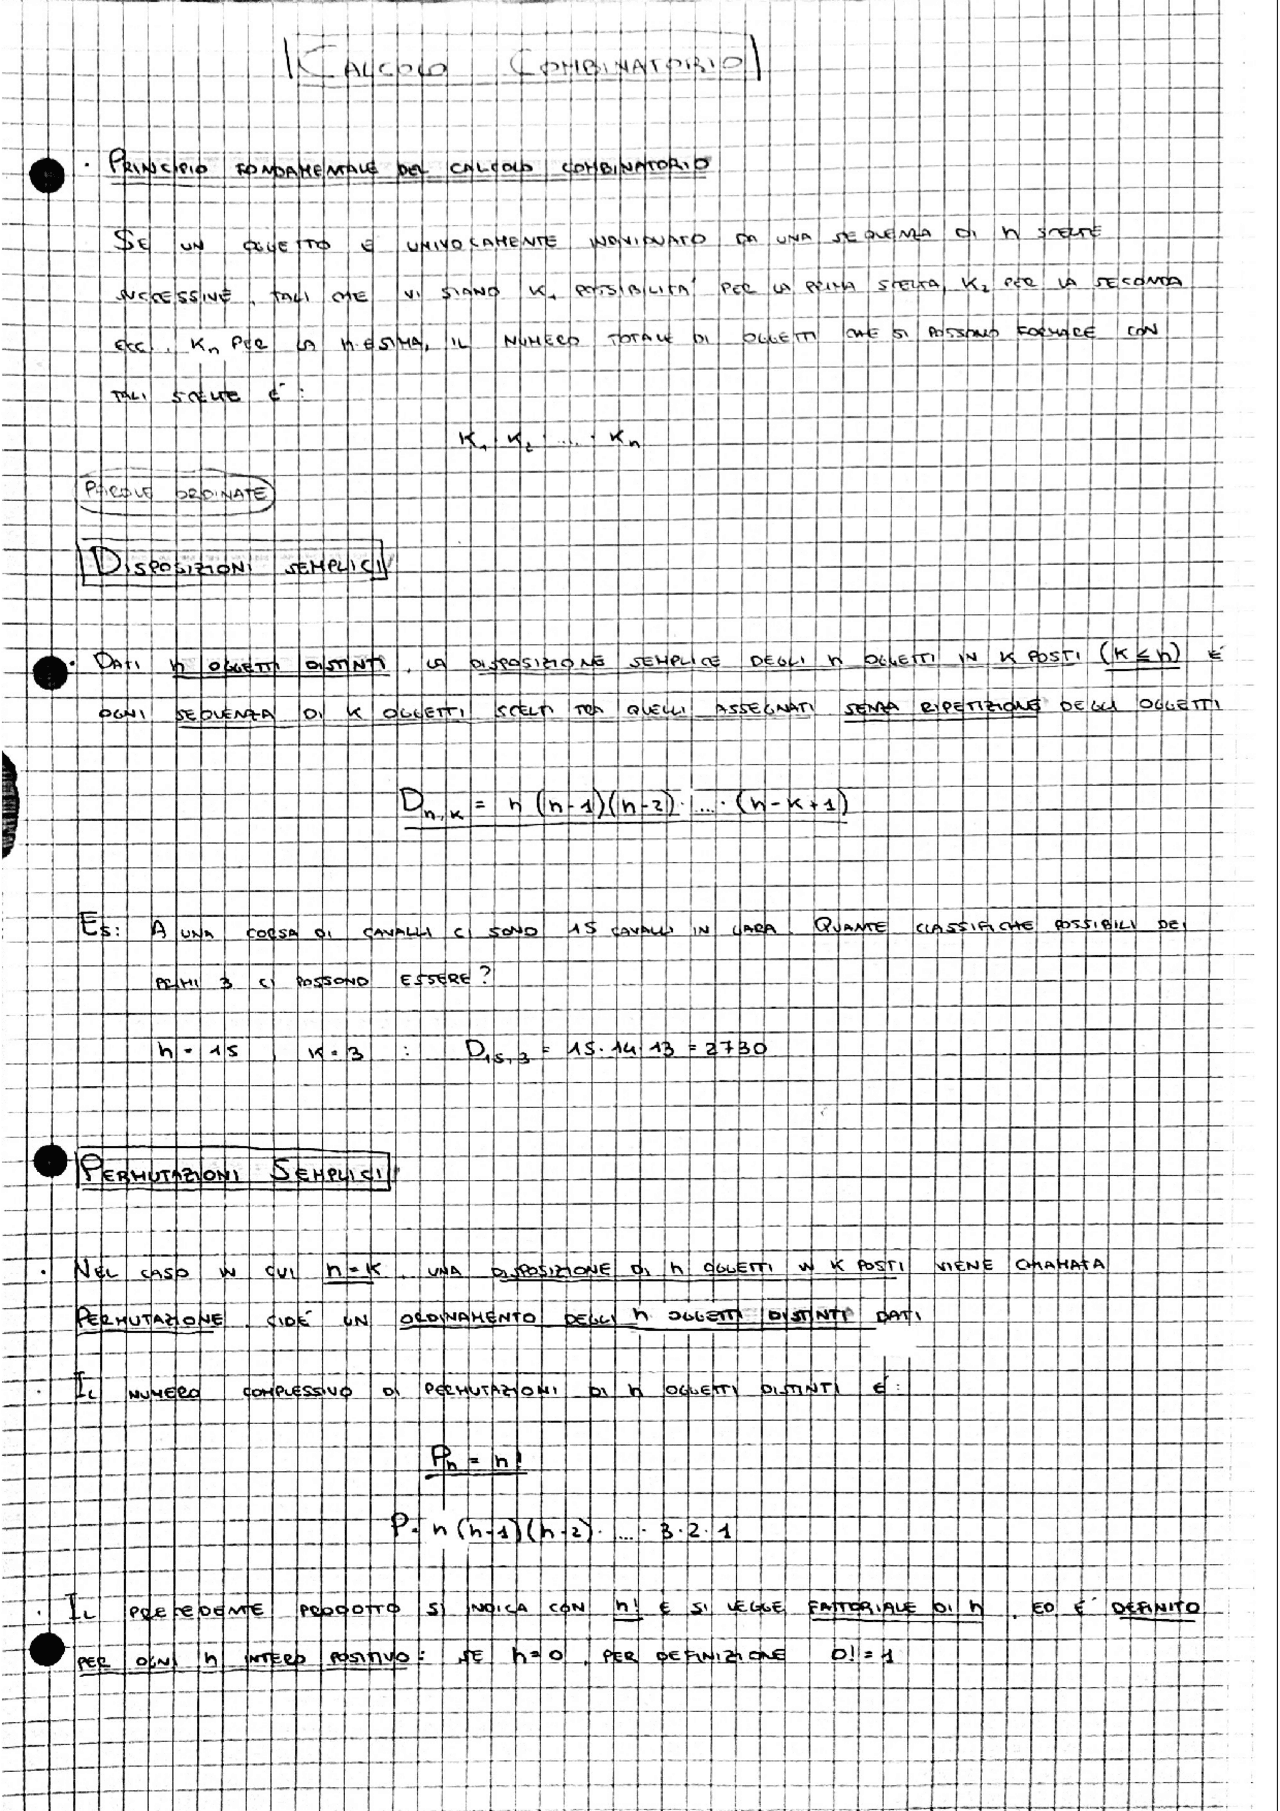 CALCOLO COMBINATORIO
· PRINCIPIO FONDAMENTALE DEL CALCOLO COMBINATORIO
SE UN OGGETTO È UNIVOCAMENTE INDIVIDUATO DA UNA SEQUENZA DI n SCELTE
SUCCESSIVE, TALI CHE VI SIANO K₁ POSSIBILITA' PER LA PRIMA SCELTA, K₂ PER LA SECONDA
ECC., Kₙ PER LA n-ESIMA, IL NUMERO TOTALE DI OGGETTI CHE SI POSSONO FORMARE CON
TALI SCELTE E':
K₁ · K₂ · .... · Kₙ
PAROLE ORDINATE
DISPOSIZIONI SEMPLICI
· DATI n OGGETTI DISTINTI, LA DISPOSIZIONE SEMPLICE DEGLI n OGGETTI IN K POSTI (K ≤ n) E'
OGNI SEQUENZA DI K OGGETTI SCELTI TRA QUELLI ASSEGNATI SENZA RIPETIZIONE DEGLI OGGETTI
Dₙ,ₖ = n (n-1)(n-2) · .... · (n-K+1)
ES: A UNA CORSA DI CAVALLI CI SONO 15 CAVALLI IN GARA. QUANTE CLASSIFICHE POSSIBILI DEI
PRIMI 3 CI POSSONO ESSERE?
n = 15 , K = 3 : D₁₅,₃ = 15 · 14 · 13 = 2730
PERMUTAZIONI SEMPLICI
· NEL CASO IN CUI n = K, UNA DISPOSIZIONE DI n OGGETTI IN K POSTI VIENE CHIAMATA
PERMUTAZIONE, CIOÈ UN ORDINAMENTO DEGLI n OGGETTI DISTINTI DATI
· IL NUMERO COMPLESSIVO DI PERMUTAZIONI DI n OGGETTI DISTINTI E':
Pₙ = n!
P = n (n-1)(n-2) · .... · 3 · 2 · 1
· IL PRECEDENTE PRODOTTO SI INDICA CON n! E SI LEGGE FATTORIALE DI n, ED E' DEFINITO
PER OGNI n INTERO POSITIVO: SE n=0, PER DEFINIZIONE 0! = 1